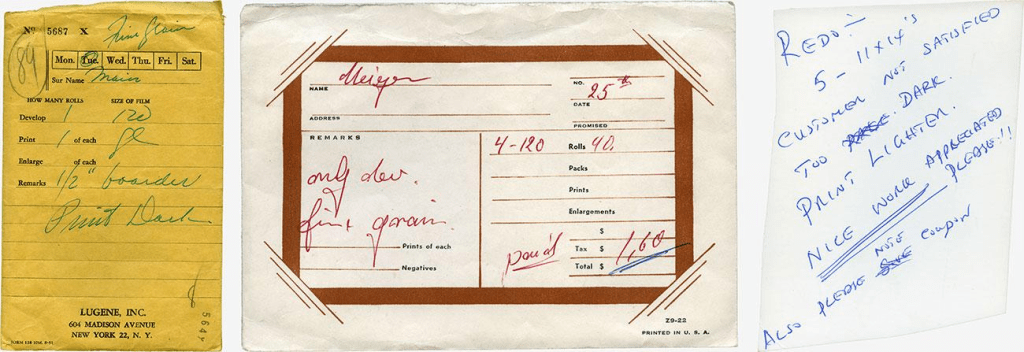 Nº 5687 X
Fine Grain
84
Mon. Tue. Wed. Thu. Fri. Sat.
Sur Name
HOW MANY ROLLS SIZE OF FILM
Develop 1 120
Print 1 of each
Enlarge of each
Remarks 1/2" boarder
Print Dark
LUGENE, INC.
604 MADISON AVENUE
NEW YORK 22, N. Y.
NAME
ADDRESS
REMARKS
only dev.
fine grain
Prints of each
Negatives
NO. 25
DATE
PROMISED
4-120 Rolls 40
Packs
Prints
Enlargements
$
paid Tax $ 1,60
Total $
Z9-22
PRINTED IN U. S. A.
REDO:
5 - 11X14's
CUSTOMER NOT SATISFIED
TOO DARK.
PRINT LIGHTER.
NICE WORK APPRECIATED
PLEASE!!
ALSO PLEASE NOTE COUPON